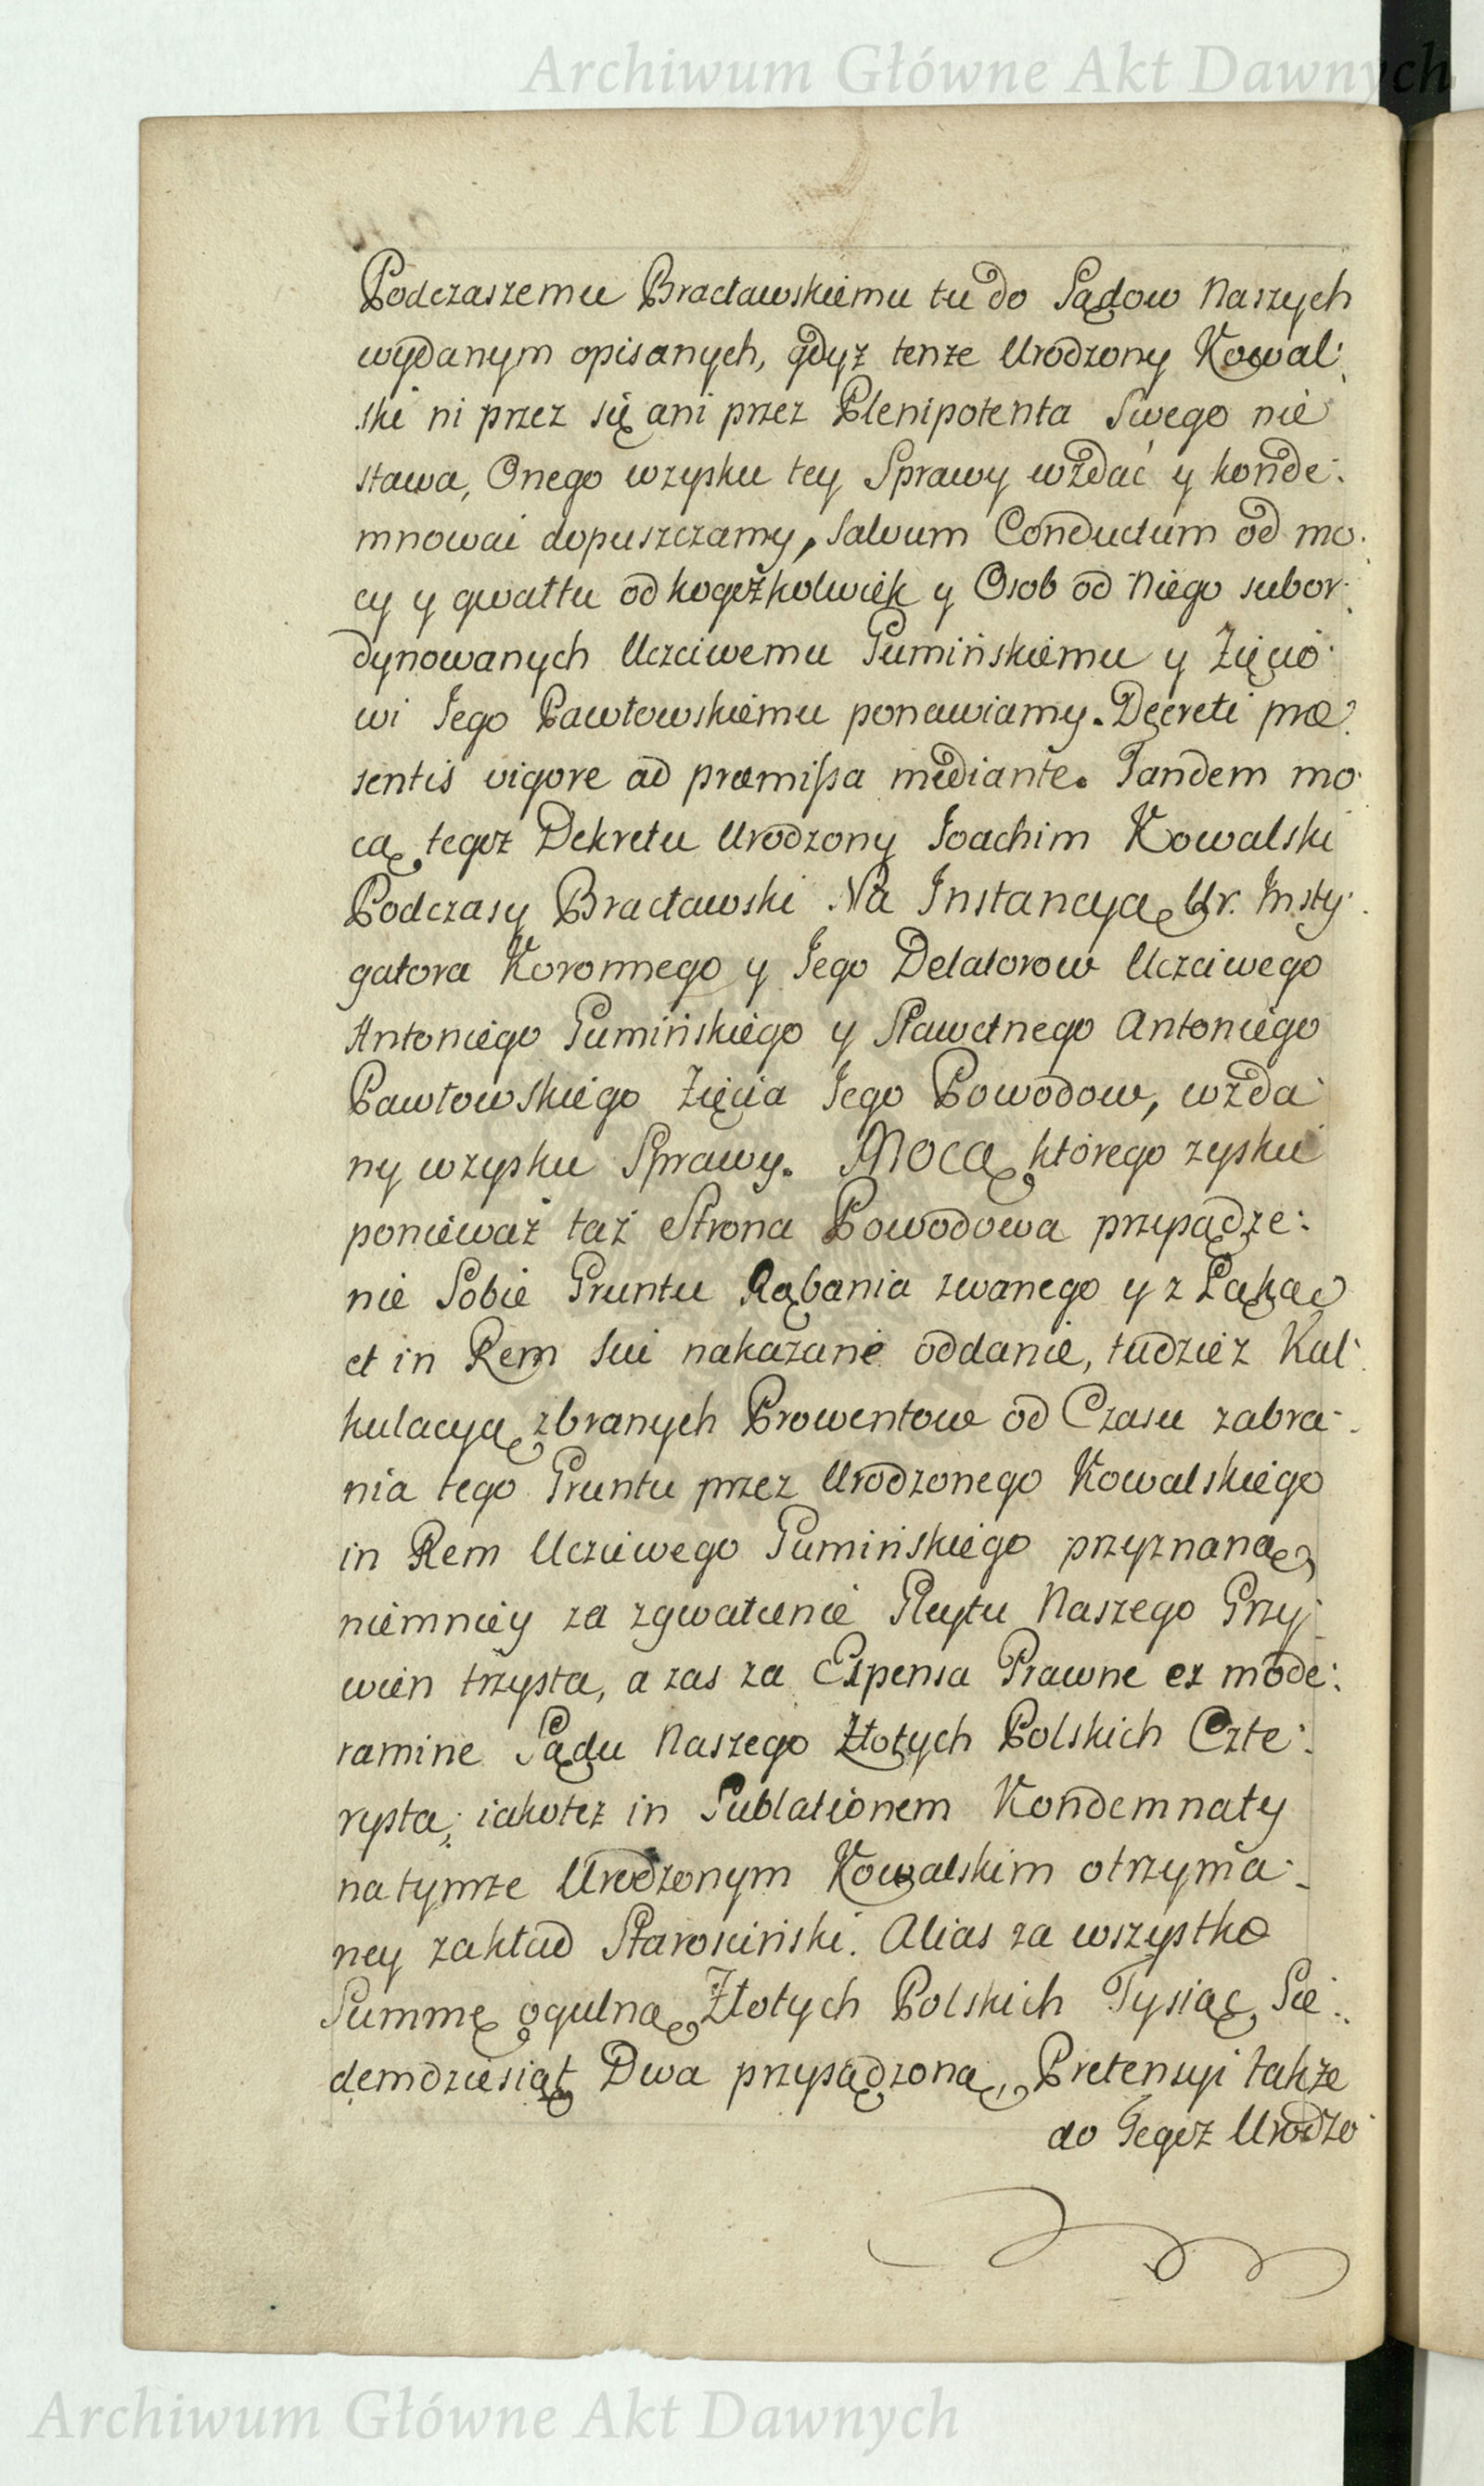 Archiwum Główne Akt Dawnych
Podczaszemu Bracławskiemu tu do Sądow Naszych
wydanym opisanych, gdyż tenże Urodzony Kowal:
ski ni przez się ani przez Plenipotenta Swego nie
stawa, Onego wzysku tey Sprawy wzdać y konde:
mnować dopuszczamy, salvum Conductum od mo:
cy y gwałtu od kogożkolwiek y Osob od Niego subor:
dynowanych Uczciwemu Gumińskiemu y Zięcio:
wi Jego Pawłowskiemu ponawiamy. Decreti præ:
sentis vigore ad præmissa mediante. Tandem mo:
cą tegoż Dekretu Urodzony Joachim Kowalski
Podczasy Bracławski Na Instancyą Ur. Insty:
gatora Koronnego y Jego Delatorow Uczciwego
Antoniego Gumińskiego y Sławetnego Antoniego
Pawłowskiego Zięcia Jego Powodow, wzda:
ny wzysku Sprawy. Mocą którego zysku
ponieważ taż Strona Powodowa przysądze:
nie Sobie Gruntu Rąbania zwanego y z Łąką
et in Rem sui nakazane oddanie, tudzież Kal:
kulacyą zbranych Prowentow od Czasu zabra:
nia tego Gruntu przez Urodzonego Kowalskiego
in Rem Uczciwego Gumińskiego przyznaną
niemniey za zgwałcenie Gleytu Naszego Grzy:
wien trzysta, a zas za Expensa Prawne ex mode:
ramine Sądu Naszego Złotych Polskich Czte:
rysta, iakotez in Sublationem Kondemnaty
na tymże Urodzonym Kowalskim otrzyma:
ney zakład Starosciński. Alias za wszystko
Summę ogulną Złotych Polskich Tysiąc Sie:
demdziesiąt Dwa przysądzoną, Pretensyi także
do Tegoż Urodzo:
Archiwum Główne Akt Dawnych